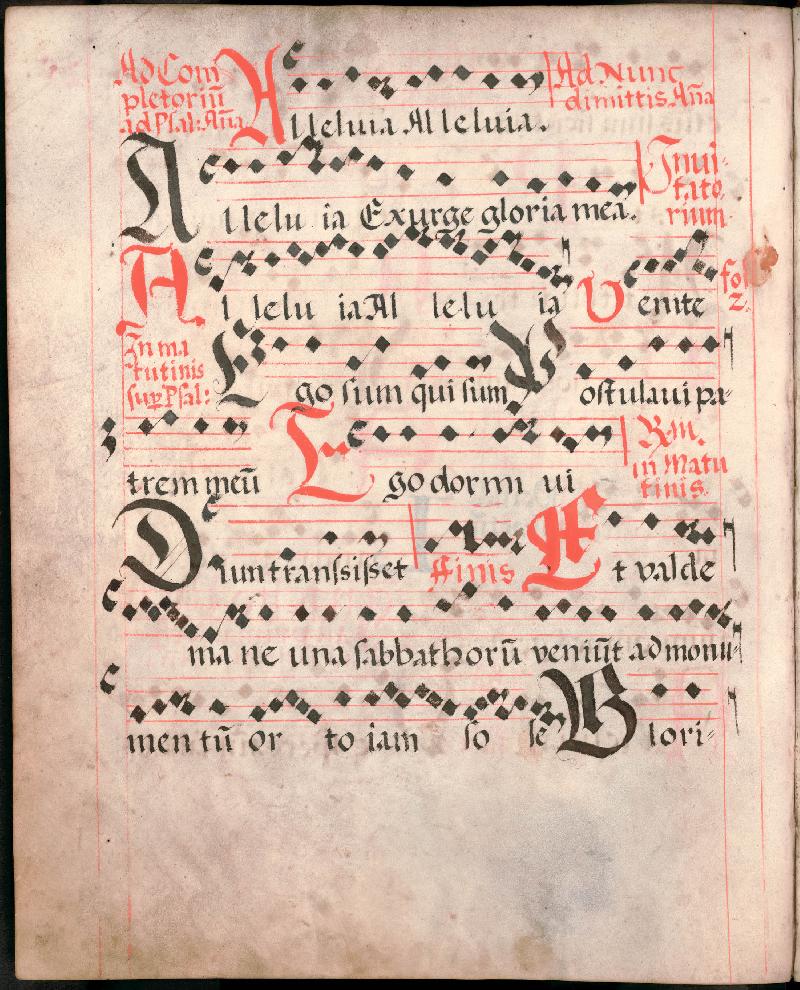 Ad Com
pletoriū
ad Psal: Aña
Alleluia Alleluia.
Ad Nunc
dimittis. Aña
Allelu ia Exurge gloria mea.
Inui-
tato
rium
Al lelu ia Al lelu ia Venite
fo.
2.
In ma
tutinis
sup Psal:
Ego sum qui sum Postulaui pa-
trem meū Ego dormi ui
Rm.
in Matu
tinis.
Dum transsisset finis Et valde
ma ne una sabbathorū veniūt ad monu-
men tū or to iam so le Glori-